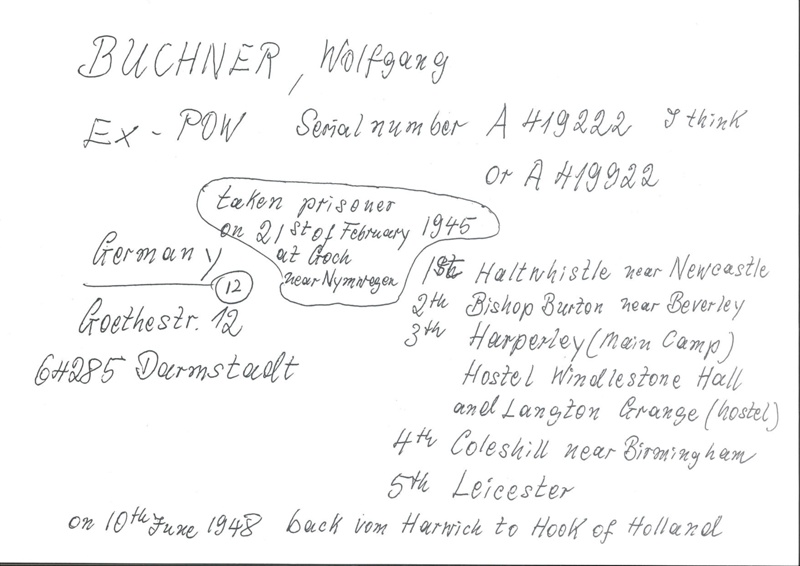 BUCHNER, Wolfgang
Ex-POW Serial number A 419222 I think
or A 419922
taken prisoner
on 21st of February 1945
at Goch
near Nymwegen
Germany
12
Goethestr. 12
64285 Darmstadt
1st Haltwhistle near Newcastle
2th Bishop Burton near Beverley
3th Harperley (Main Camp)
Hostel Windlestone Hall
and Langton Grange (hostel)
4th Coleshill near Birmingham
5th Leicester
on 10th June 1948 back vom Harwich to Hook of Holland